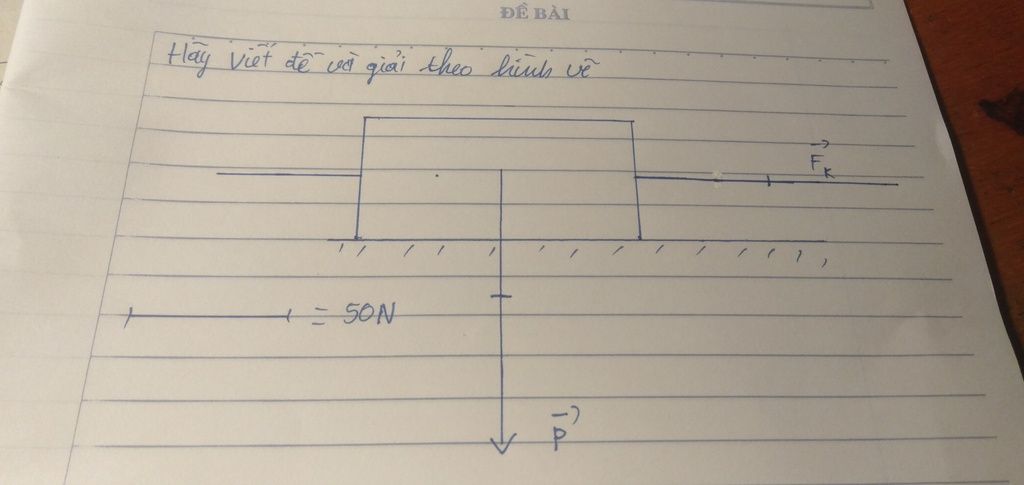 ĐỀ BÀI
Hãy viết đề và giải theo hình vẽ
F K
= 50N
P